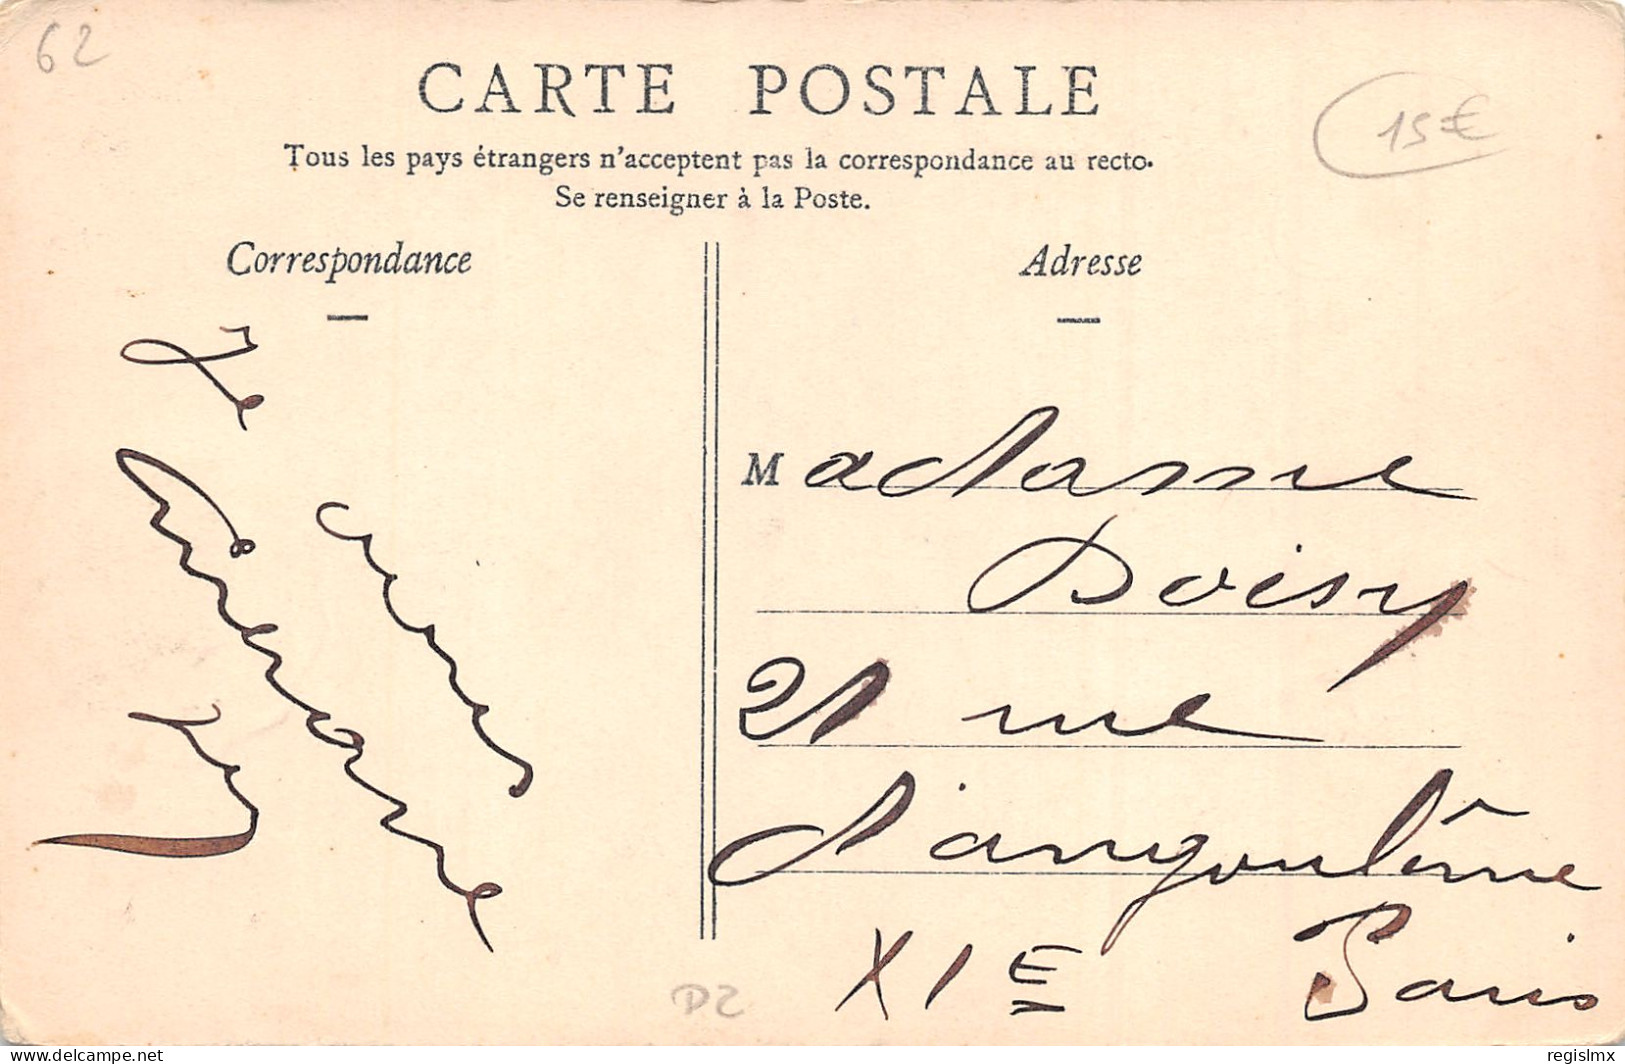 62
CARTE POSTALE
15€
Tous les pays étrangers n'acceptent pas la correspondance au recto.
Se renseigner à la Poste.
Correspondance
Adresse
Je
Madame
Doisy
21 rue
d'angoulême
XIE Paris
DZ
delcampe.net
regislmx